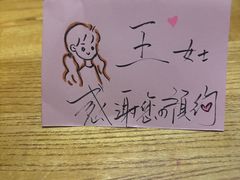 王 女士
感謝您的預約